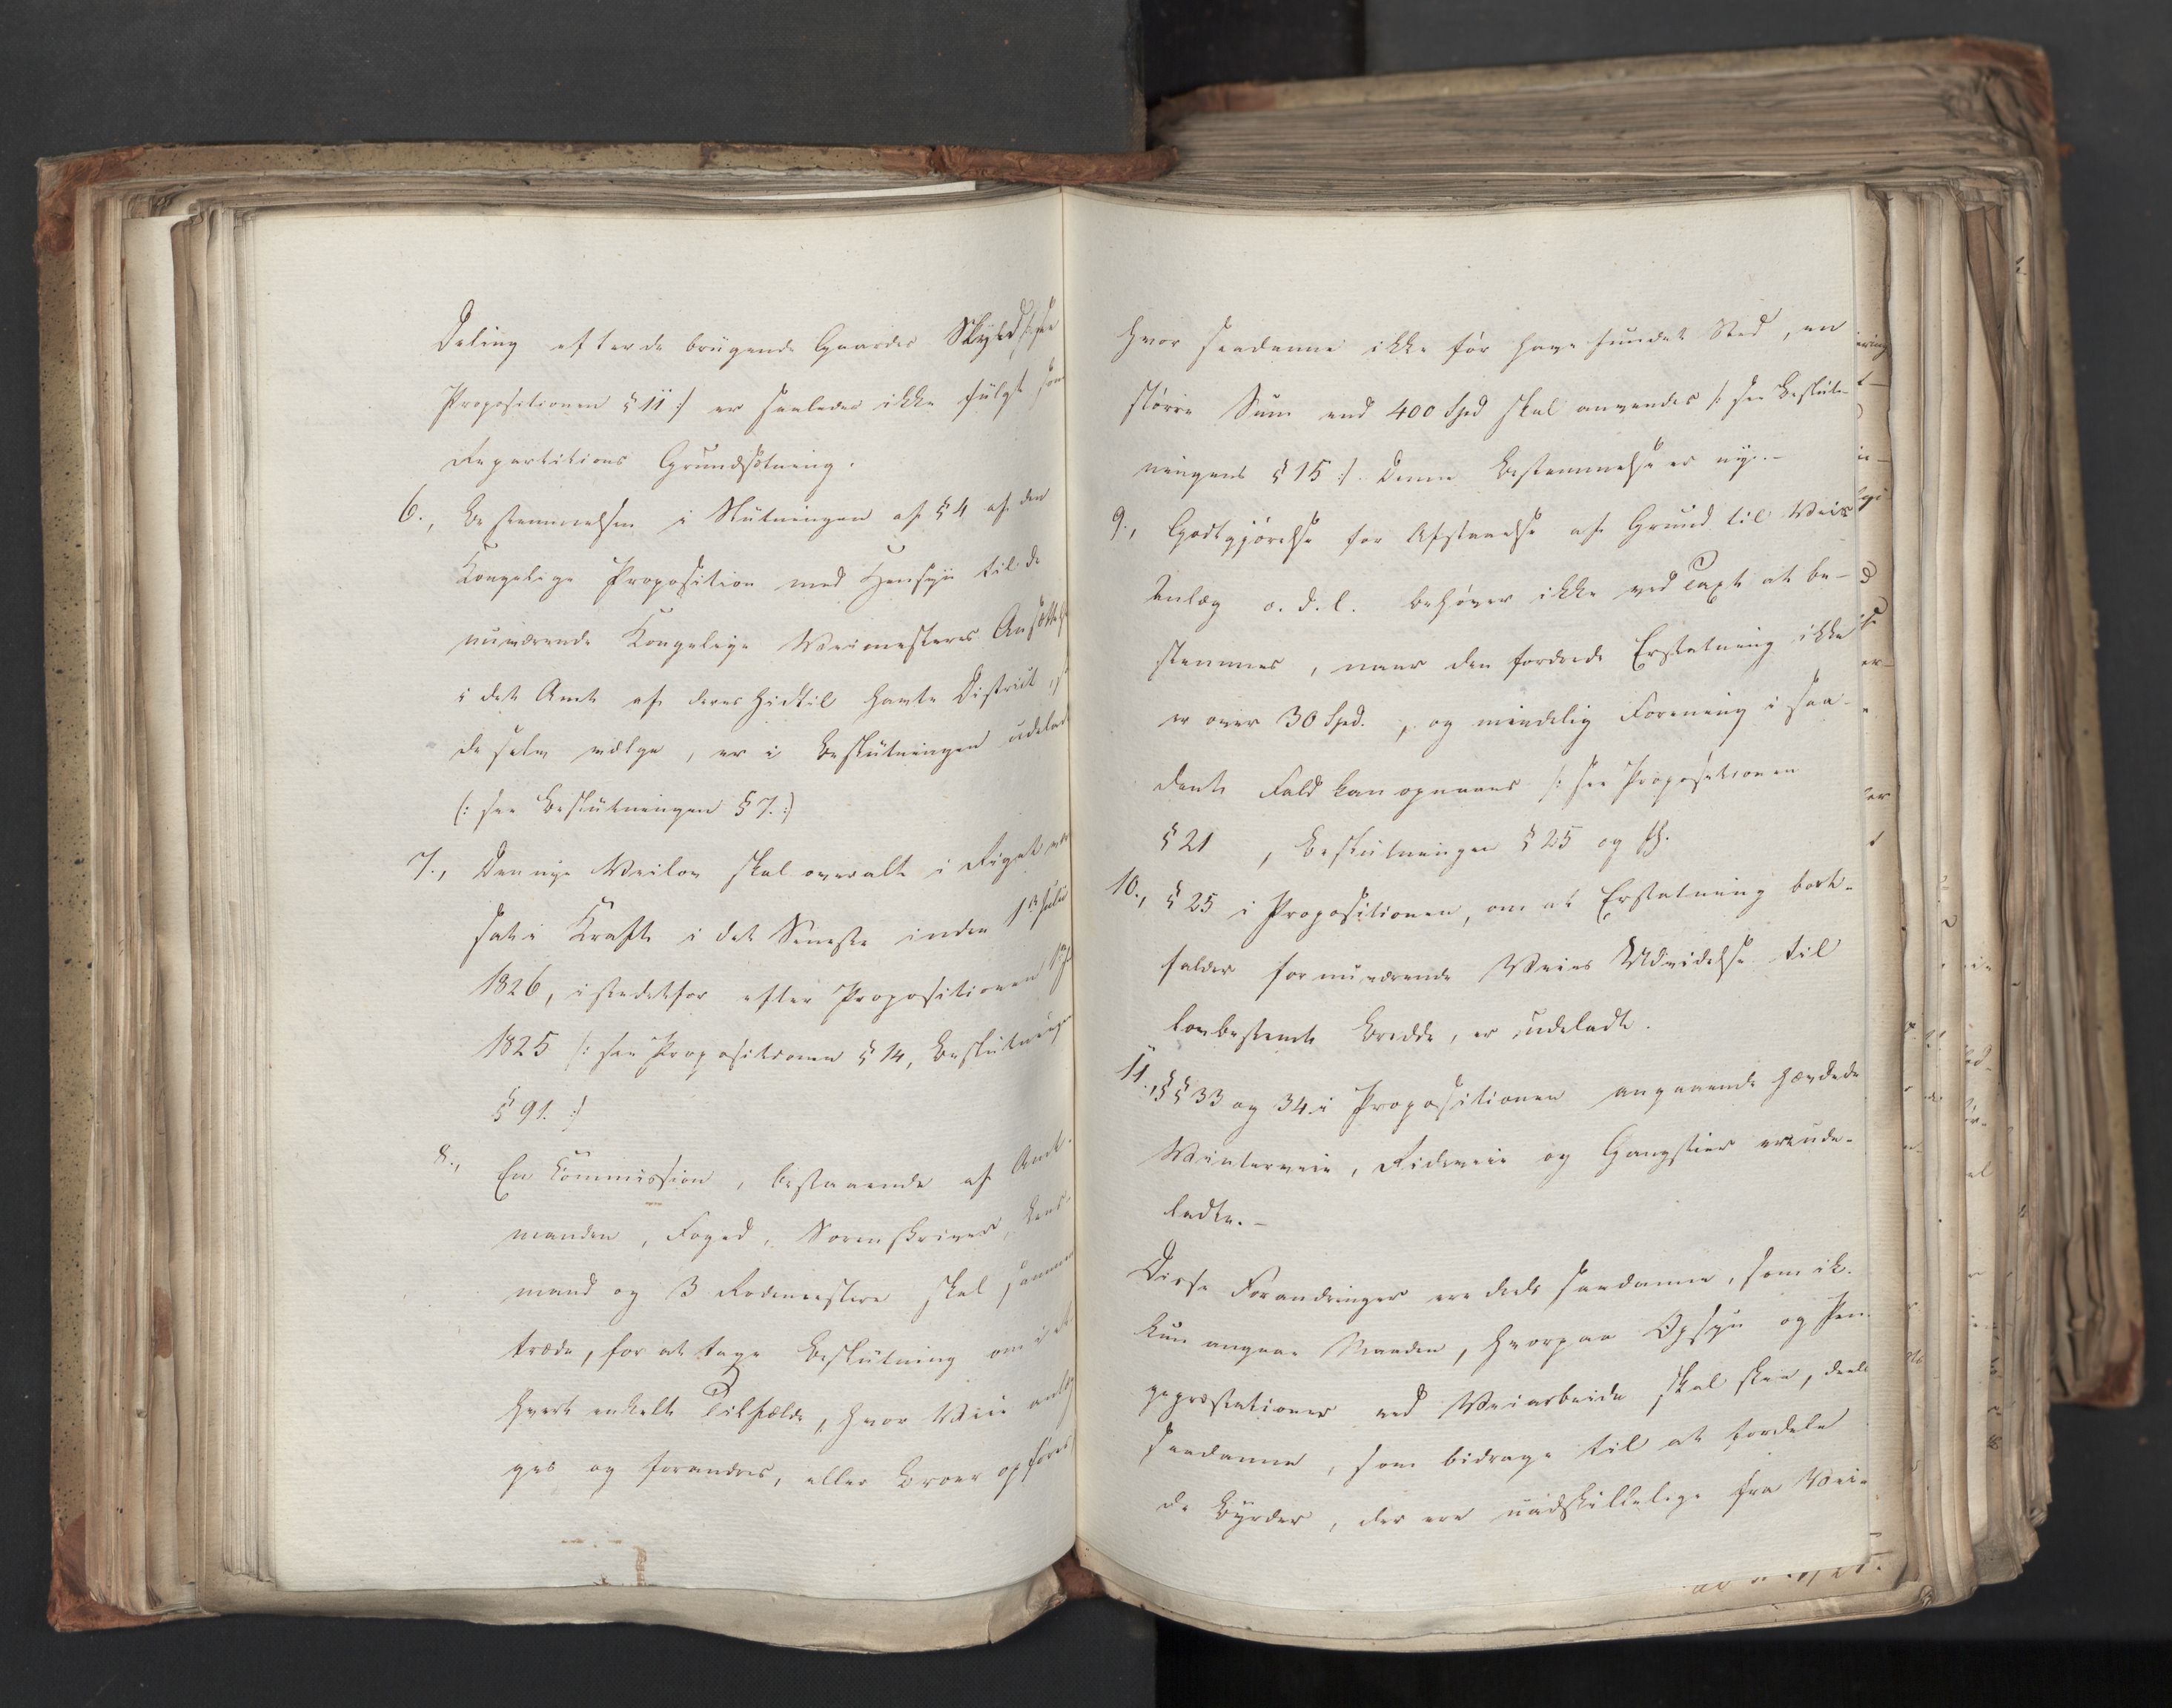 Deling efter de brugende Gaardes Skyld /: see
Propositionen § 11 :/ er saaledes ikke fulgt som
Repartitions Grundsætning.
6., Bestemmelsen i Slutningen af § 4 af den
Kongelige Proposition med Hensyn til de
nuværende Kongelige Veimesteres Ansættelse
i det Amt af deres hidtil havte District,
de selv vælge, er i Beslutningen udeladt
(: see Beslutningen § 7. :)
7., Den nye Veilov skal overalt i Riget være
sat i Kraft i det Seneste inden 1ste Julii
1826, istedetfor efter Propositionen
1825 /: see Propositionen § 14, Beslutningen
§ 91. :/
8., En Commission, bestaaende af Amt-
manden, Foged, Sorenskriver, Lens-
mand og 3 Rodemestere skal sammen-
træde, for at tage Beslutning om i et-
hvert enkelt Tilfælde, hvor Veie anlæg-
ges og forandres, eller Broer opføres
hvor saadanne ikke før have fundet Sted, en
større Sum end 400 Spd skal anvendes /: see Beslut-
ningens § 15 :/. Denne Bestemmelse er ny. -
9., Godtgjørelse for Afstaaelse af Grund til Veies
Anlæg o. d. l. behøver ikke ved Taxt at be-
stemmes, naar den fordrede Erstatning ikke
er over 30 Spd., og mindelig Forening i saa-
dant Fald kan opnaaes /: see Propositionen
§ 21, Beslutningen § 25 og
10., § 25 i Propositionen, om at Erstatning bort-
falder for nuværende Veies Udvidelse til
lovbestemt Bredde, er udeladt.
11., §§ 33 og 34 i Propositionen angaaende hævdede
Vinterveie, Rideveie og Gangstier ere ude-
ladte. -
Disse Forandringer ere deels saadanne, som ik-
kun angaae Maaden, hvorpaa Opsyn og Pen-
gepræstationer ved Veiarbeide skal skee, deels
saadanne, som bidrage til at fordele
de Byrder, der ere uadskillelige fra Vei-